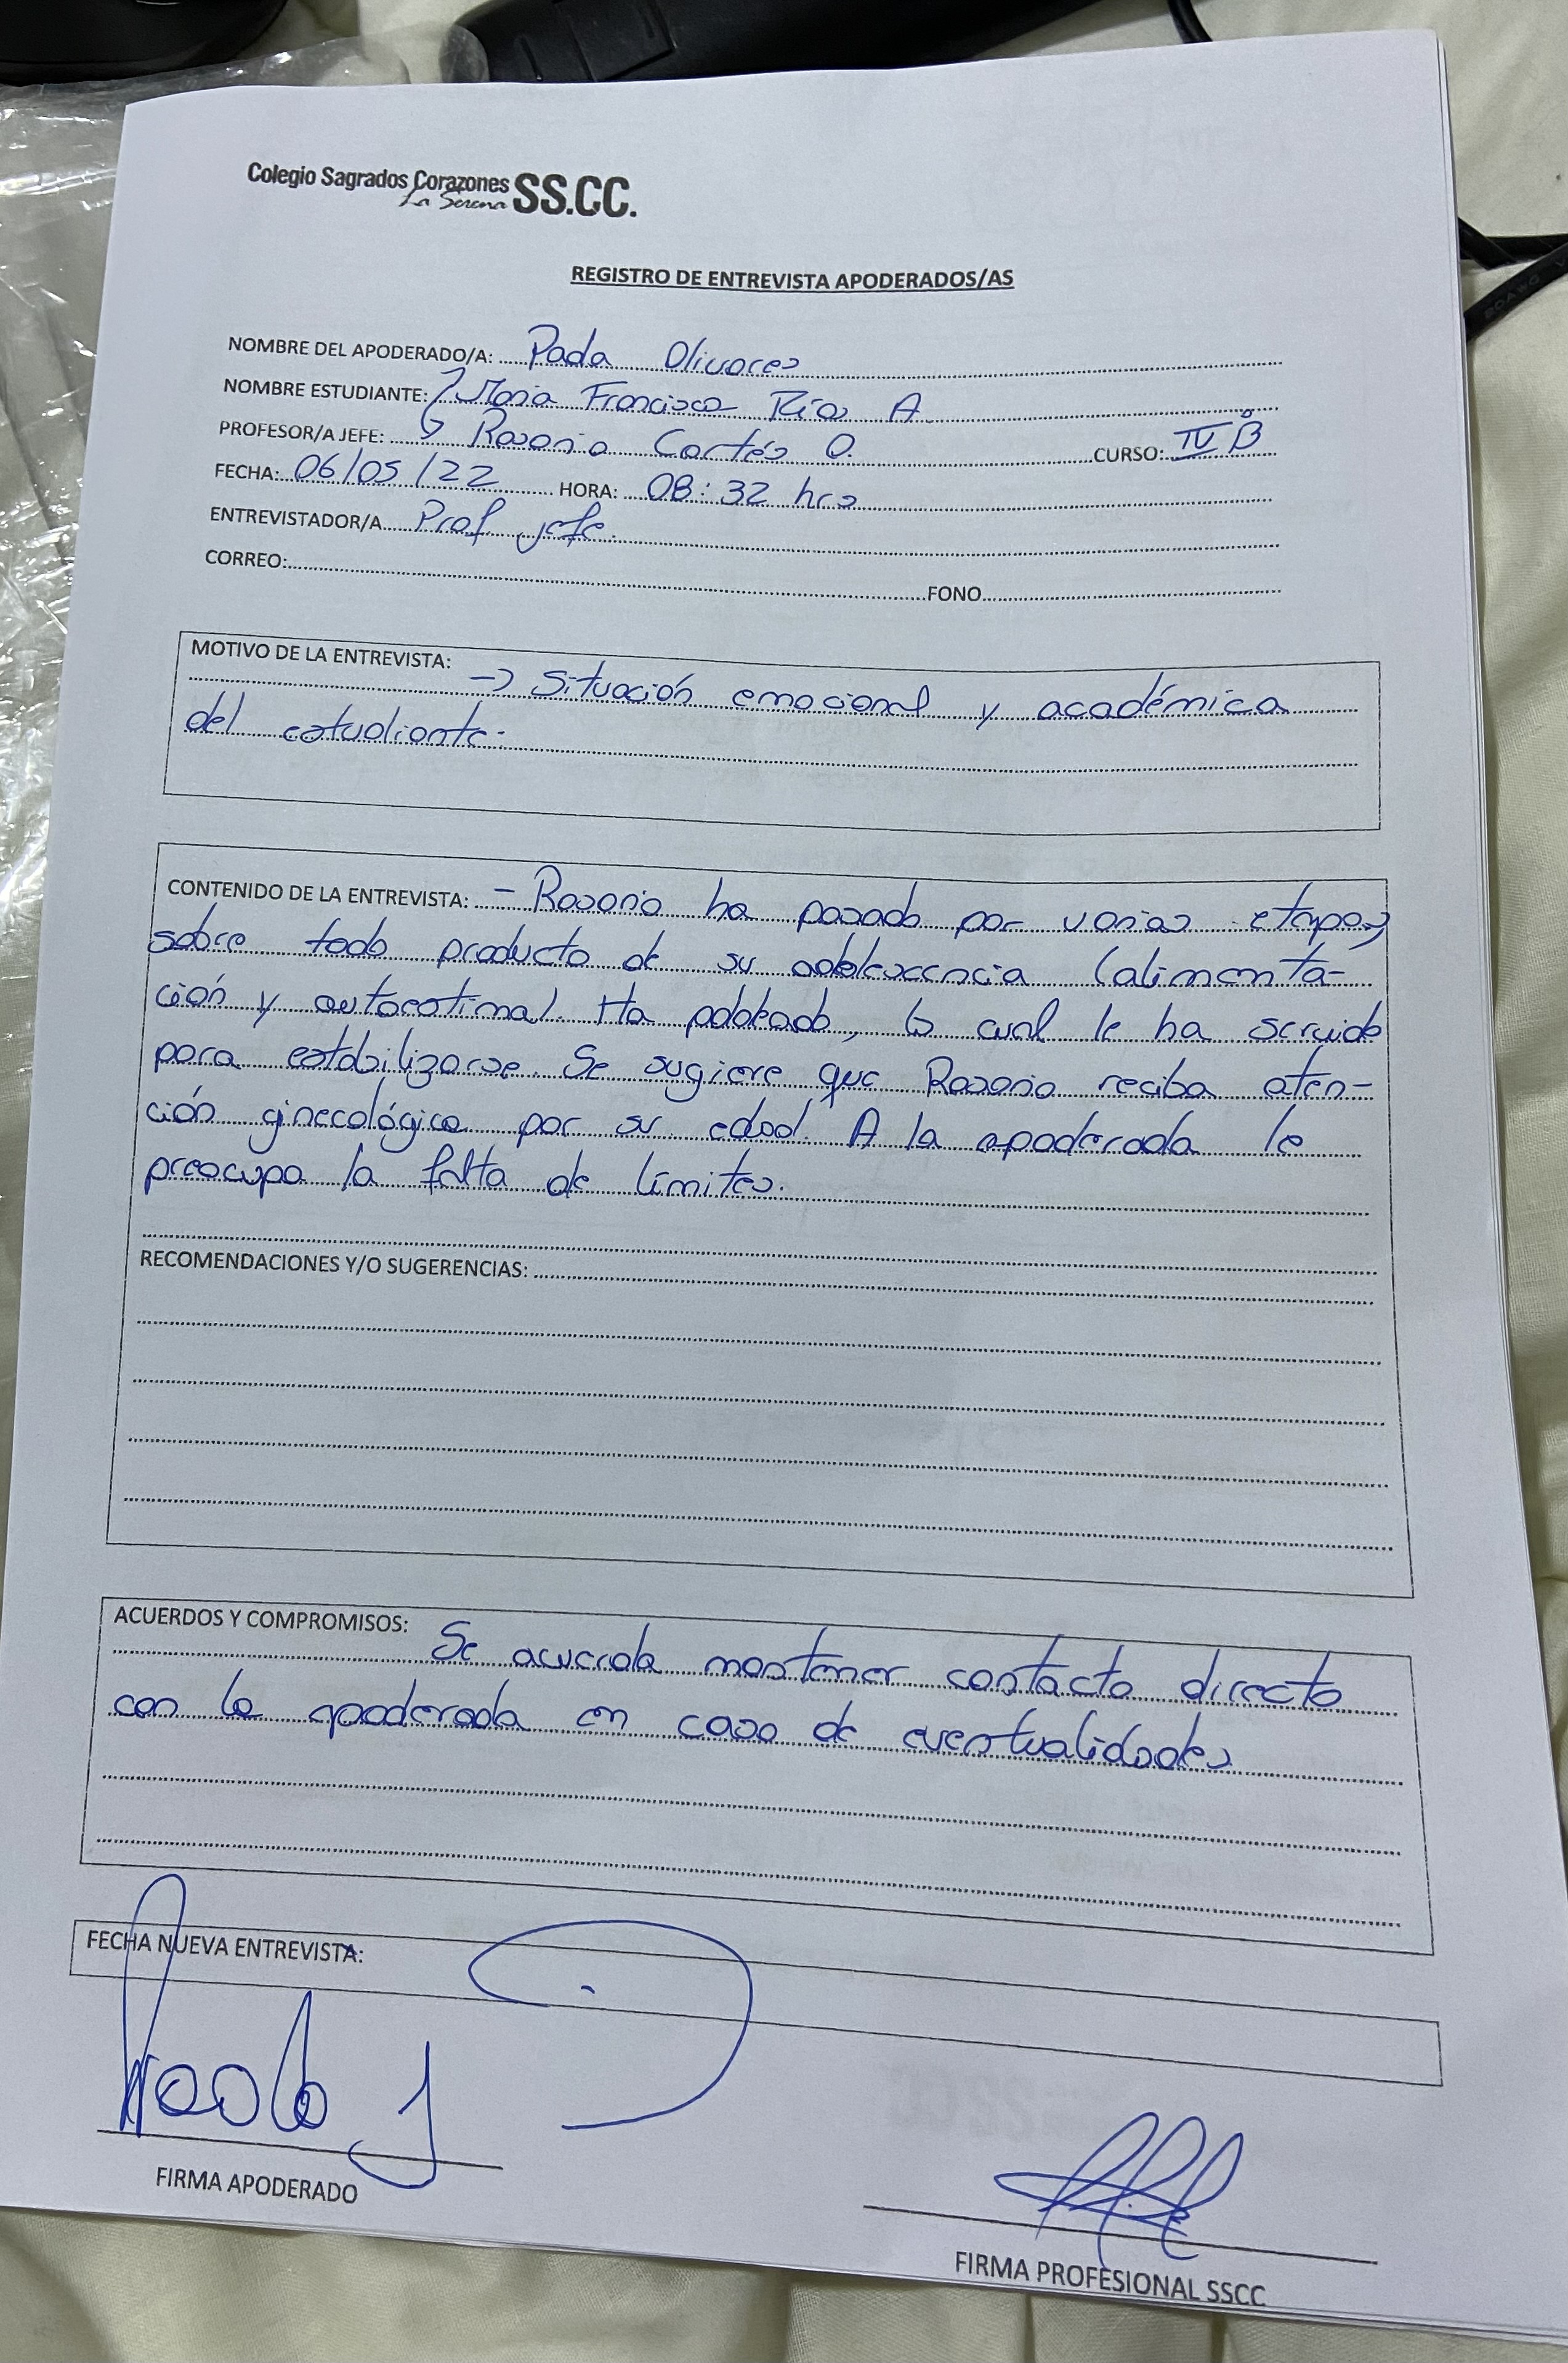 Colegio Sagrados Corazones SS.CC.
La Serena
REGISTRO DE ENTREVISTA APODERADOS/AS
NOMBRE DEL APODERADO/A: Paola Olivares
NOMBRE ESTUDIANTE: María Francisca Ríos A.
PROFESOR/A JEFE: Rosario Cortés O. CURSO: IV B
FECHA: 06/05/22 HORA: 08:32 hrs
ENTREVISTADOR/A Prof. jefe.
CORREO: FONO
MOTIVO DE LA ENTREVISTA:
→ Situación emocional y académica
del estudiante.
CONTENIDO DE LA ENTREVISTA: - Rosario ha pasado por varias etapas,
sobre todo producto de su adolescencia (alimenta-
ción y autoestima). Ha pololeado, lo cual le ha servido
para estabilizarse. Se sugiere que Rosario reciba aten-
ción ginecológica por su edad. A la apoderada le
preocupa la falta de límites.
RECOMENDACIONES Y/O SUGERENCIAS:
ACUERDOS Y COMPROMISOS:
Se acuerda mantener contacto directo
con la apoderada en caso de eventualidades
FECHA NUEVA ENTREVISTA:
Paola
FIRMA APODERADO
FIRMA PROFESIONAL SSCC